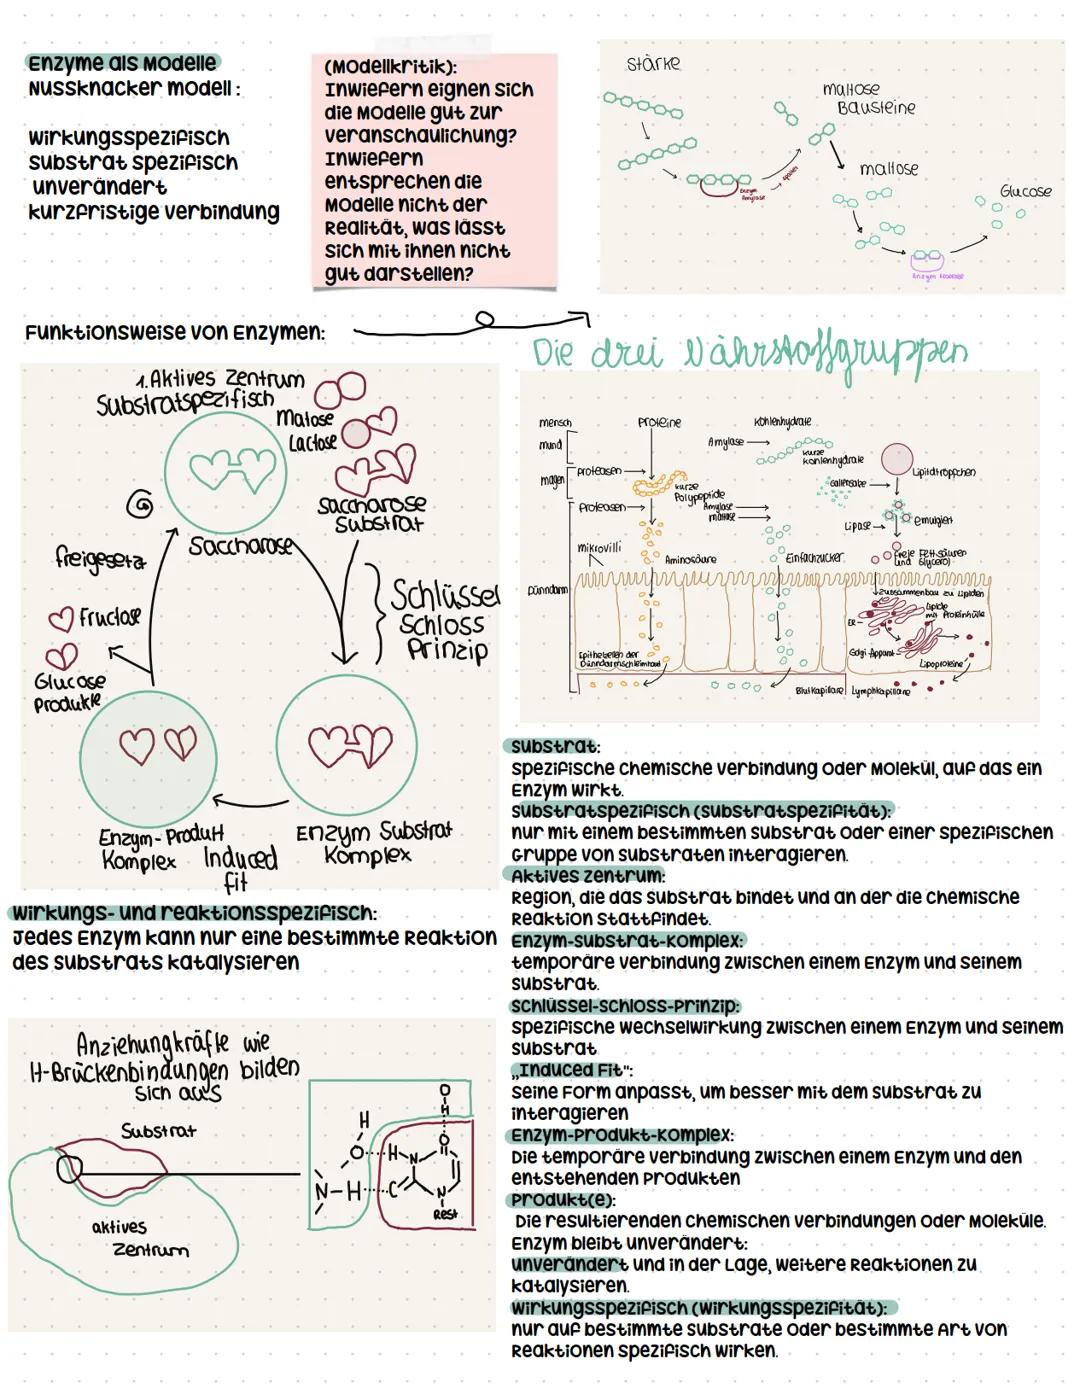 Enzyme als Modelle
Nussknacker modell:
wirkungsspezifisch
substrat spezifisch
unverändert
kurzfristige verbindung
(Modellkritik):
Inwiefern eignen sich
die Modelle gut zur
veranschaulichung?
Inwiefern
entsprechen die
Modelle nicht der
Realität, was lässt
sich mit ihnen nicht
gut darstellen?
stärke
maltose
Bausteine
Enzym
Amylase
spalten
maltose
Glucose
Enzym Maltase
Funktionsweise von Enzymen:
1. Aktives Zentrum
Substratspezifisch
Malose
Lactose
Saccharose
Substrat
Saccharose
freigesetz
Fructose
Glucose
Produkte
Schlüssel
Schloss
Prinzip
Enzym-Produkt
Komplex
Induced
fit
Enzym Substrat
Komplex
Die drei Nährstoffgruppen
mensch
Proteine
Kohlenhydrate
mund
Amylase
kurze
kohlenhydrate
Lipidtröpfchen
magen
proteasen
kurze
Polypeptide
Gallensabe
proteasen
Amylase
maltase
Lipase
emulgiert
mikrovilli
Aminosäure
Einfachzucker
freie Fettsäuren
und Glycerol
Dünndarm
Zusammenbau zu Lipiden
Lipide
mit Proteinhülle
ER
Golgi Apparat
Lipoproteine
Epithelzellen der
Dünndarmschleimhaut
Blutkapillare
Lymphkapillare
substrat:
spezifische chemische verbindung oder Molekül, auf das ein
Enzym wirkt.
substratspezifisch (substratspezifität):
nur mit einem bestimmten substrat oder einer spezifischen
Gruppe von substraten interagieren.
Aktives zentrum:
Region, die das substrat bindet und an der die chemische
Reaktion stattfindet.
Enzym-substrat-Komplex:
temporäre verbindung zwischen einem Enzym und seinem
substrat.
schlüssel-schloss-Prinzip:
spezifische wechselwirkung zwischen einem Enzym und seinem
substrat
„Induced Fit":
seine Form anpasst, um besser mit dem substrat zu
interagieren
Enzym-Produkt-Komplex:
Die temporäre verbindung zwischen einem Enzym und den
entstehenden Produkten
Produkt(e):
Die resultierenden chemischen verbindungen oder Moleküle.
Enzym bleibt unverändert:
unverändert und in der Lage, weitere Reaktionen zu
katalysieren.
wirkungsspezifisch (wirkungsspezifität):
nur auf bestimmte substrate oder bestimmte Art von
Reaktionen spezifisch wirken.
wirkungs- und reaktionsspezifisch:
Jedes Enzym kann nur eine bestimmte Reaktion
des substrats katalysieren
Anziehungkräfte wie
H-Brückenbindungen bilden
sich aus
Substrat
aktives
Zentrum
H
O
H
O
H
N
O
N-H
C
N
Rest